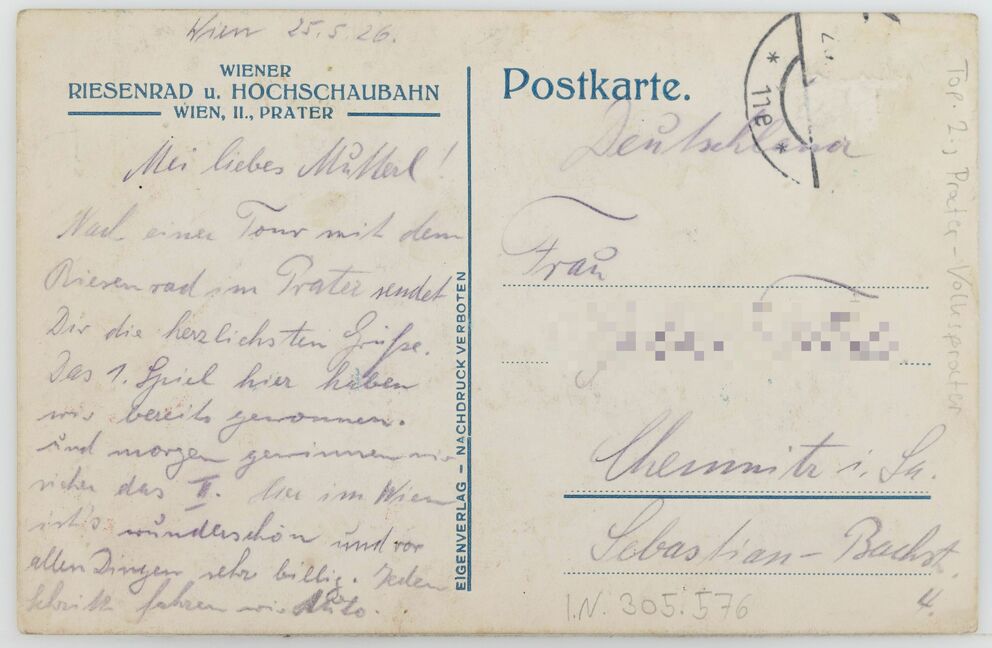 Wien 25.5.26.
WIENER
RIESENRAD u. HOCHSCHAUBAHN
WIEN, II., PRATER
Mei liebes Mutterl!
Nach einer Tour mit dem
Riesenrad im Prater sendet
Dir die herzlichsten Grüße.
Das 1. Spiel hier haben
wir bereits gewonnen.
und morgen gewinnen wir
sicher das II. hier im Wien
ist's wunderschön und vor
allen Dingen sehr billig. Jeden
Schritt fahren wir Auto.
EIGENVERLAG – NACHDRUCK VERBOTEN
Postkarte.
11e
Deutschland
Frau
Chemnitz i. Sa.
Sebastian-Bachst.
4.
I.N. 305.576
Top. 2, Prater-Volksprater